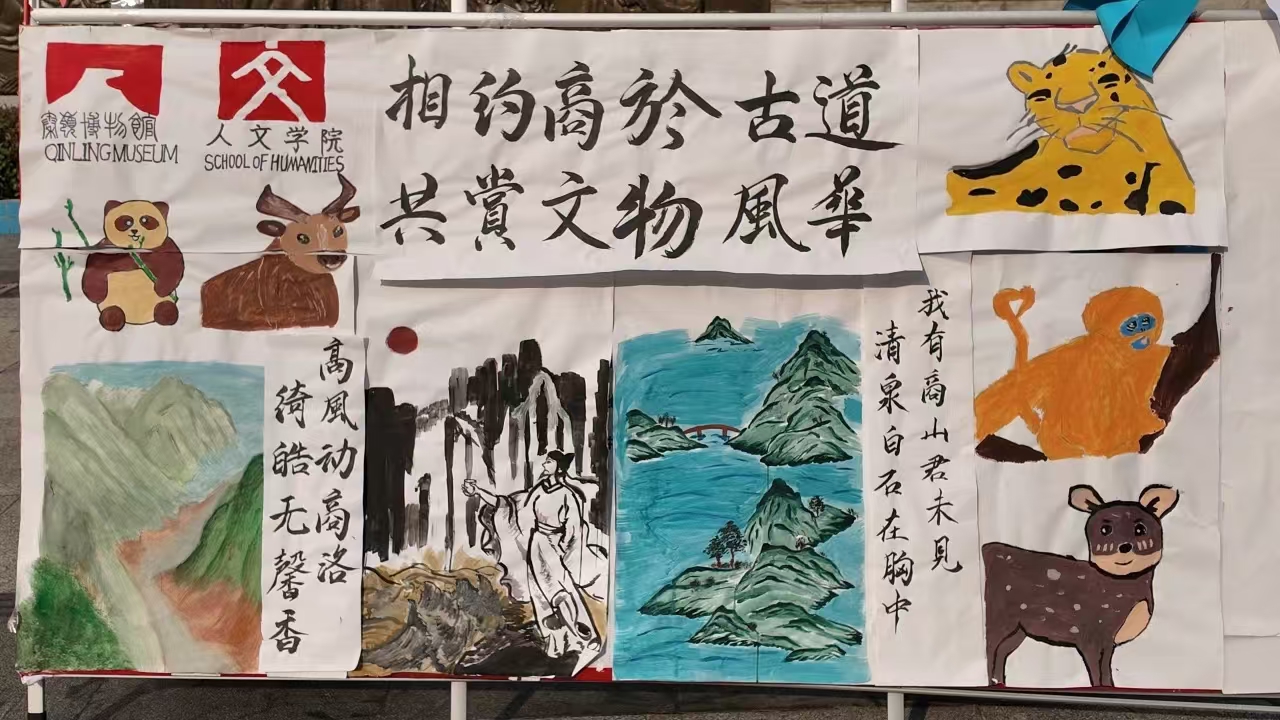 秦嶺博物館
QINLING MUSEUM
人文学院
SCHOOL OF HUMANITIES
相约商於古道
共賞文物風華
高風动商洛
绮皓无馨香
我有商山君未見
清泉白石在胸中